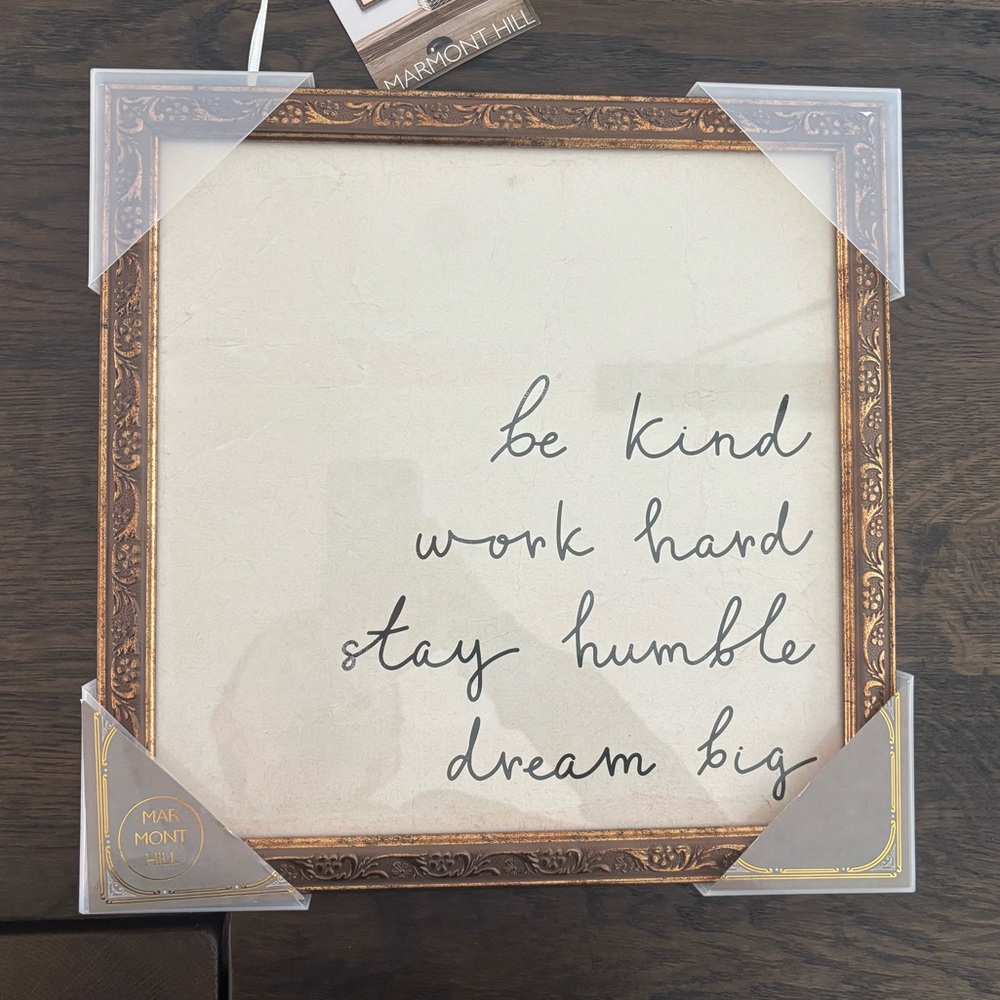 MARMONT HILL
be kind
work hard
stay humble
dream big
MAR
MONT
HILL